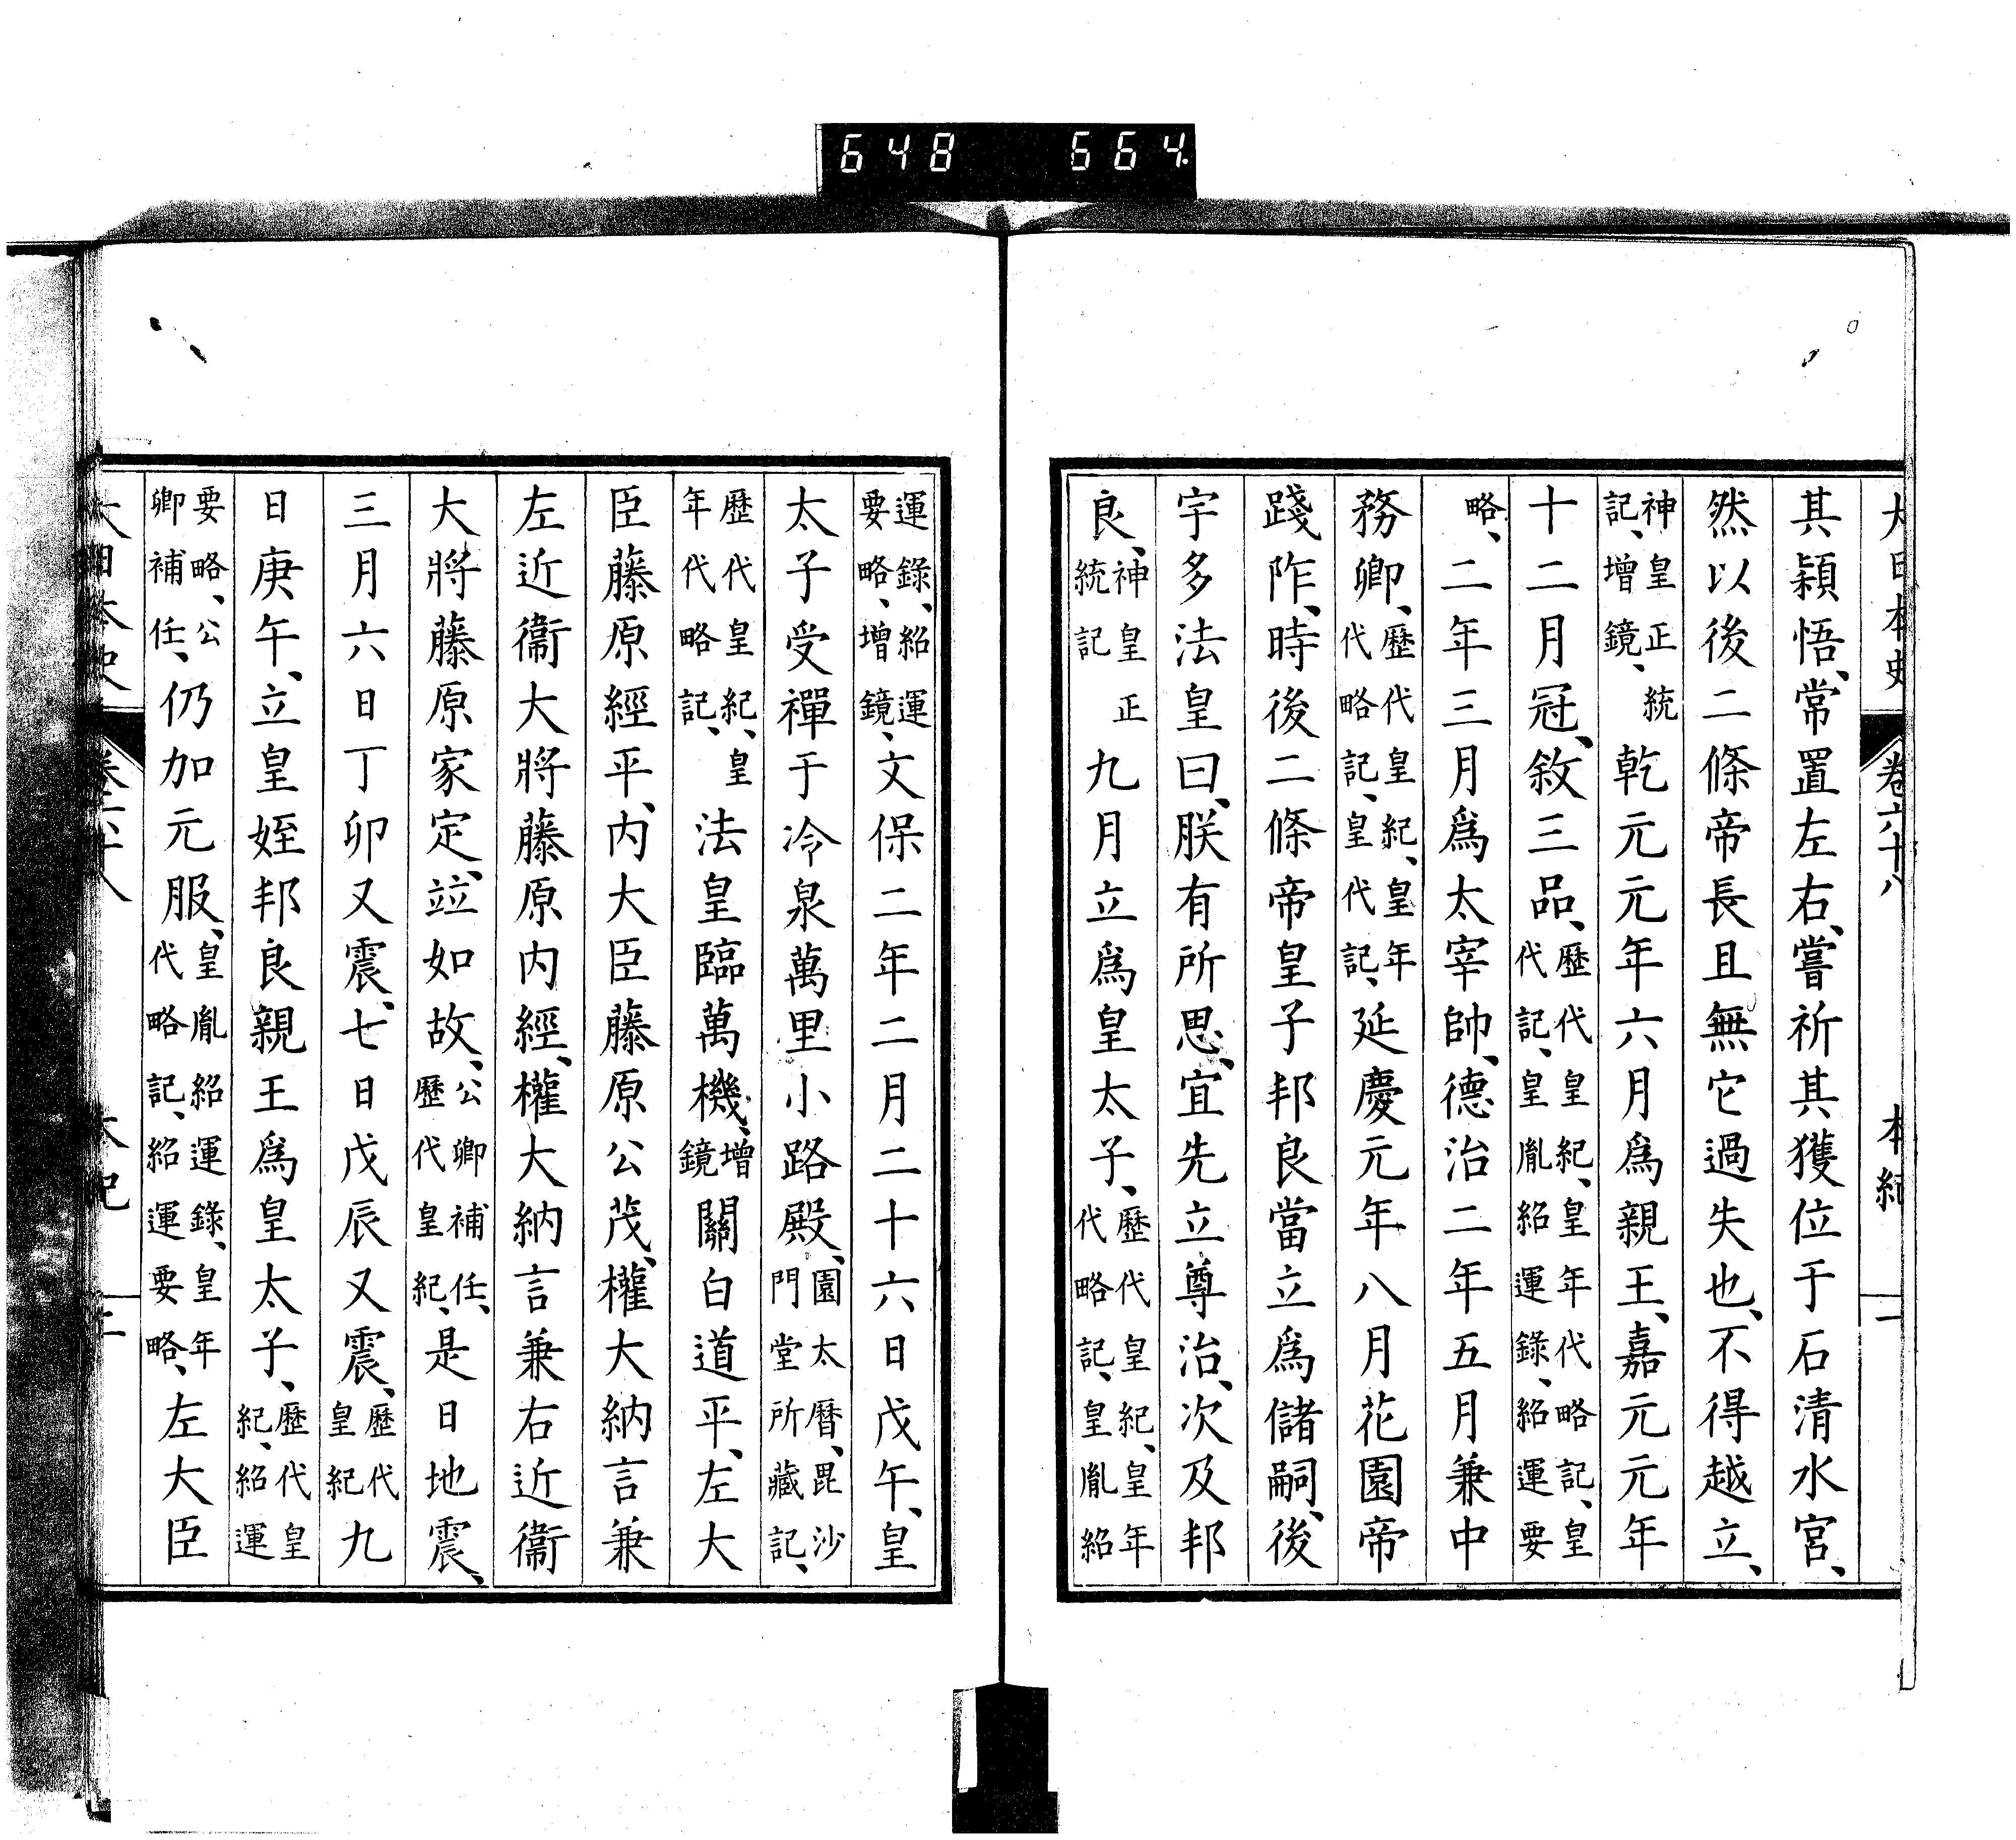 648 664
大日本史 卷六十八 本紀 二
其穎悟、常置左右、嘗祈其獲位于石清水宮、
然以後二條帝長且無它過失也、不得越立、
神皇正統記、增鏡、乾元元年六月爲親王、嘉元元年
十二月冠、敘三品、歷代皇紀、皇年代略記、皇代記、皇胤紹運錄、紹運要
略、二年三月爲太宰帥、德治二年五月兼中
務卿、歷代皇紀、皇年代略記、皇代記、延慶元年八月花園帝
踐阼、時後二條帝皇子邦良當立爲儲嗣、後
宇多法皇曰、朕有所思、宜先立尊治、次及邦
良、神皇正統記九月立爲皇太子、歷代皇紀、皇年代略記、皇胤紹
運錄、紹運要略、增鏡、文保二年二月二十六日戊午、皇
太子受禪于冷泉萬里小路殿、園太曆、毘沙門堂所藏記、
歷代皇紀、皇年代略記、法皇臨萬機、增鏡關白道平、左大
臣藤原經平、內大臣藤原公茂、權大納言兼
左近衞大將藤原內經、權大納言兼右近衞
大將藤原家定、竝如故、公卿補任、歷代皇紀、是日地震、
三月六日丁卯又震、七日戊辰又震、歷代皇紀九
日庚午、立皇姪邦良親王爲皇太子、歷代皇紀、紹運
要略、公卿補任、仍加元服、皇胤紹運錄、皇年代略記、紹運要略、左大臣
大日本史 卷六十八 本紀 三